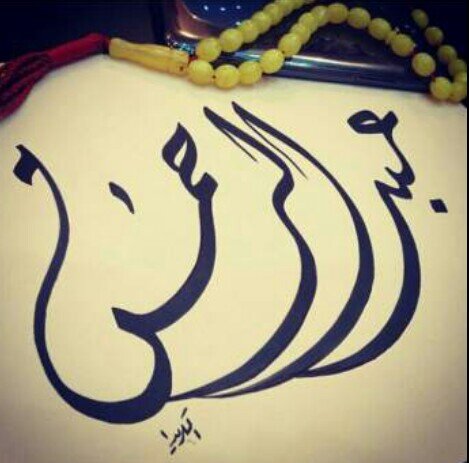 عبدالرحمن